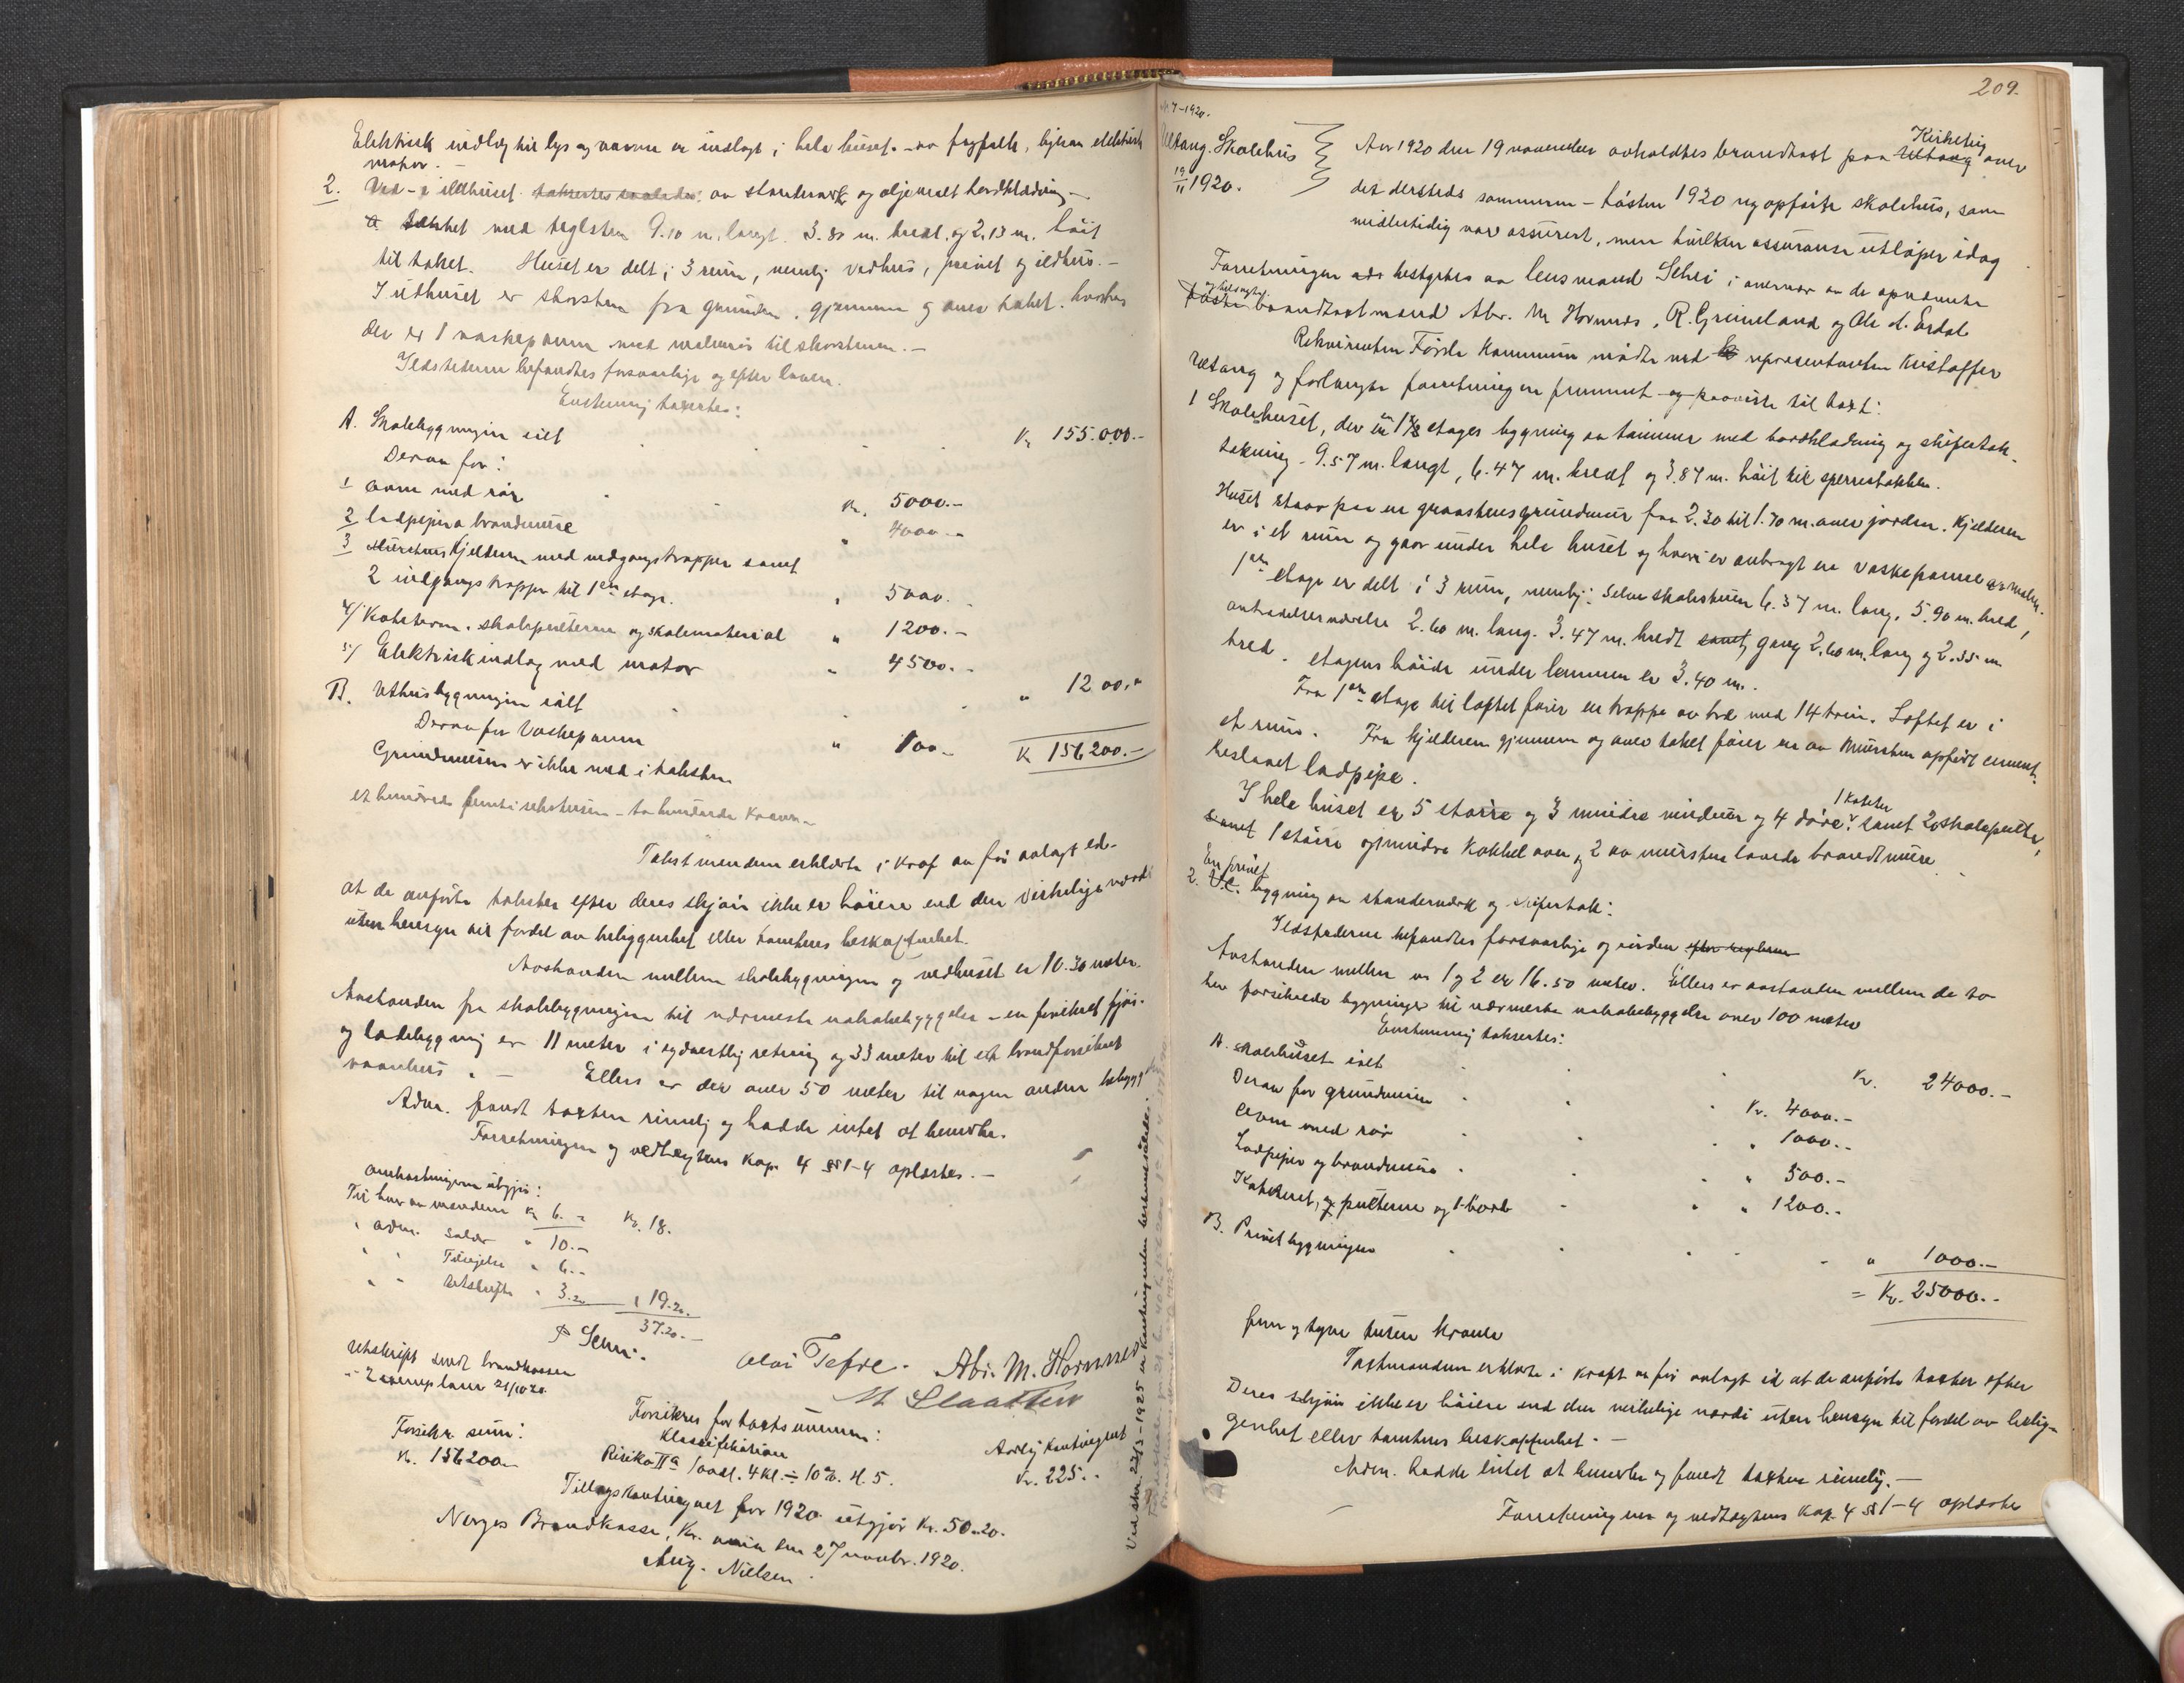 Elektrisk indlæg til lys og varme er indlagt i hele huset av fagfolk, likesaa elektrisk
motor. -
2. Ved- & ildhuset takseres saaledes: av standerverk og oljemalt bordklædning -
& tækket med teglsten 9.10 m. langt. 3.80 m. bredt, og 2.13 m. höit
til taket. Huset er delt i 3 rum, nemlig vedhus, privet og ildhus. -
I ildhuset er skorsten fra grunden, gjennem og over taket. hvorhos
der er 1 vaskepanne med til skorstenen. -
Ildstederne befandtes forsvarlige og efter loven.
Enstemmig taxertes:
A. Skolebygningen ialt Kr 155.000.-
Derav for:
1 ovne med rör Kr. 5000.-
2 ladpiper o brandmure " 4000.-
3 Kjelderen med nedgangstrapper samt
2 indgangstrapper til 1ste etage. " 5000.-
4/ Kateteren, skolepulterne og skolemateriel " 1200.-
5/ Elektrisk indlæg med motor " 4500.-
B. Uthusbygningen ialt " 1200.-
Derav for Vaskepanne " 100.-
Kr 156200.-
Grundmuren er ikke med i taksten
et hundrede femti seks tusen - to hundrede kroner -
Takstmendene erklærte i kraft av för avlagt ed
at de anförte takster efter deres skjön ikke er höiere end den virkelige værdi
uten hensyn til fordel av beliggenhet eller tomtens beskaffenhet.
Avstanden mellem skolebygningen og vedhuset er 10.30 meter.
Avstanden fra skolebygningen til nærmeste nabobebyggelse - en forsikret fjös-
og ladebygning er 11 meter i sydvestlig retning og 33 meter til et brandforsikret
vaanhus. - Ellers er der over 50 meter til nogen anden bebygg
Adm. fandt taxten rimelig og hadde intet at bemerke.
Forretningen og vedtægtens Kap. 4 §§ 1-4 oplæstes. -
Omkostningerne utgjör:
Til hver av mændene Kr 6.- Kr. 18.
" adm. salær " 10.-
" " Skyds " 6.-
" " Utskrift " 3.20 " 19.20
37.20.-
Schei.
Olai Tefre. Abr. M. Hornnes
M Slaatten
Utskrift sendt brandkassen
- 2 exemplarer 21/10 20.
Forsikr. sum: Forsikres for taxtsummen:
Kr. 156200.- Klassifikation Aarlig Kontingent
Risiko IIa 4 kl. ÷ 10% H. 5. Kr. 225.-
Tillægskontingent for 1920 utgjör Kr. 50.20.
Norges Brandkasse, Kr.ania den 27 novbr. 1920.
Aug. Nielsen.
Ved skr. 27/3-1925 er kontingenten bestemt således:
209.
7-1920.
Skolehus
19/11 1920.
Aar 1920 den 19 november avholdtes brandtakst paa Utvang Kirkeeig over
det dersteds sommeren - hösten 1920 ny opförte skolehus, som
midlertidig var assurert, men hvilken assuranse utlöper idag
Forretningen ads bestyrtes av lensmand Schei i overvær av de opnævnte
og brandtaxtmænd Abr. M Hornnes, R. Grimeland og Ole A. Erdal
Rekvirenten Förde Kommune mödte ved representanten Kristoffer
og forlangte forretningen fremmet og paaviste til taxt:
1 Skolehuset, der er en 1½ etages bygning av tömmer med bordklædning og skifertak-
tækning - 9.57 m. langt, 6.47 m. bredt og 3.87 m. höit til sperrestokken.
Huset staar paa en graastensgrundmur fra 2.30 til 1.70 m. over jorden. Kjelderen
er i et rum og gaar under hele huset og hvori er anbragt en vaskepanne av malm.
1ste etage er delt i 3 rum, nemlig: selve skolestuen 6.37 m. lang, 5.90 m. bred,
antrædesværelse 2.60 m. lang. 3.47 m. bredt samt gang 2.60 m. lang og 2.35 m
bred. etagens höide under lemmen er 3.40 m.
Fra 1ste etage til loftet förer en trappe av træ med 14 trin. Loftet er i
et rum. Fra kjelderen gjennem og over taket förer en av mursten opfört cement-
beslaaet ladpipe.
I hele huset er 5 större og 3 mindre vinduer og 4 döre. 1 Kateter samt 20 skolepulter,
samt 1 större og mindre Kakkelovn og 2 av mursten lavede brandmure.
2. En privet bygning av standerverk og skifertak:
Ildstederne befandtes forsvarlige og inden efter regleme
Avstanden mellem nr 1 og 2 er 16.50 meter. Ellers er avstanden mellem de to
her forsikrede bygninger til nærmeste nabobebyggelse over 100 meter
Enstemmig taksertes:
A. Skolehuset ialt Kr. 24000.-
Derav for grundmuren Kr. 4000.-
Ovne med rör " 1000.-
Ladpipe og brandmure " 500.-
Kateteret, og pulterne og 1 bord " 1200.-
B. Privetbygningen " 1000.-
= Kr. 25000.-
fem og tyve tusen kroner
Taxtmændene erklærte i kraft av för avlagt ed at de anförte taxter efter
Deres skjön ikke er höiere end den virkelige værdi uten hensyn til fordel av belig-
genhet eller tomtens beskaffenhet. -
Adm. hadde intet at bemerke og fandt taxten rimelig. -
Forretningen og vedtægtens Kap. 4 §§ 1-4 oplæstes